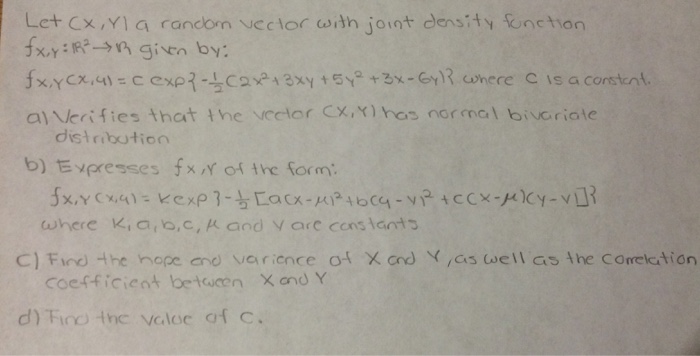 Let (X,Y) a random vector with joint density function
fx,y: ℝ² → ℝ given by:
fx,y(x,y) = c exp{-½(2x²+3xy+5y²+3x-6y)} where c is a constant.
a) Verifies that the vector (X,Y) has normal bivariate
distribution
b) Expresses fx,y of the form:
fx,y(x,y) = k exp{-½[a(x-μ)²+b(y-ν)²+c(x-μ)(y-ν)]}
where K, a, b, c, μ and ν are constants
c) Find the hope and varience of X and Y, as well as the correlation
coefficient between X and Y
d) Find the value of c.